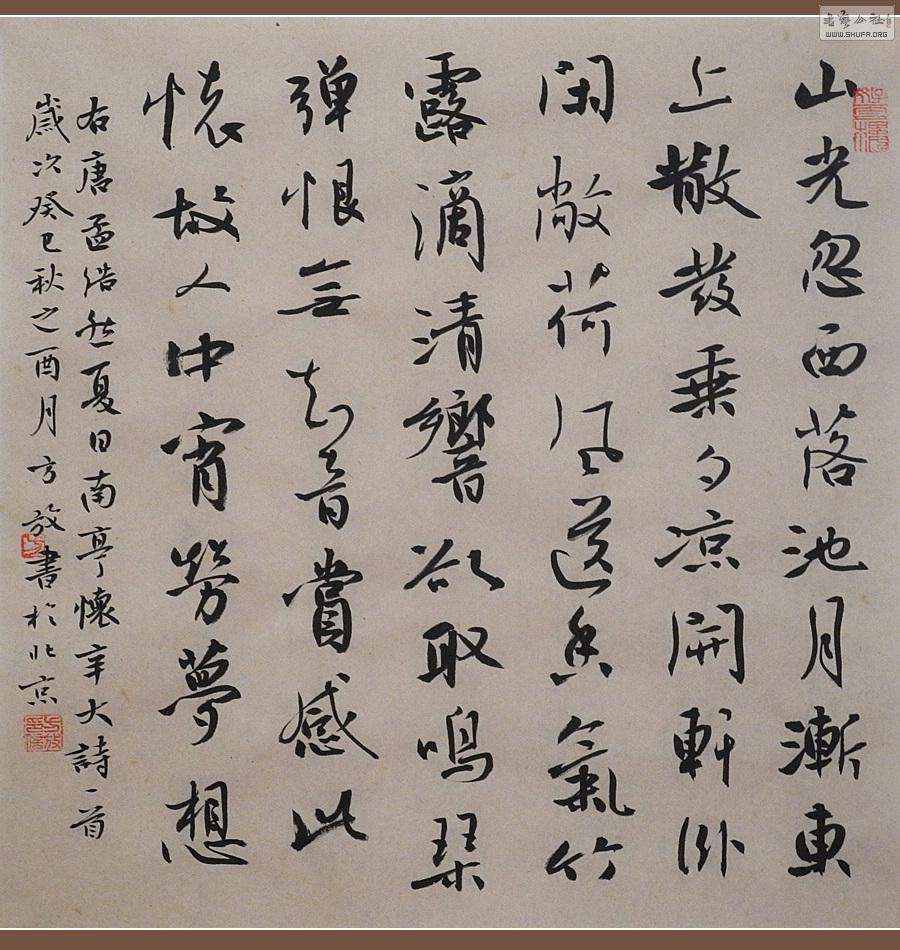 山光忽西落池月漸東
上散发乘夕凉開軒卧
闲敞荷风送香氣竹
露滴清響欲取鳴琴
弹恨無知音賞感此
懷故人中宵勞夢想
右唐孟浩然夏日南亭懷辛大詩一首
歲次癸巳秋之酉月方放書於北京
書藝公社
WWW.SHUFA.ORG